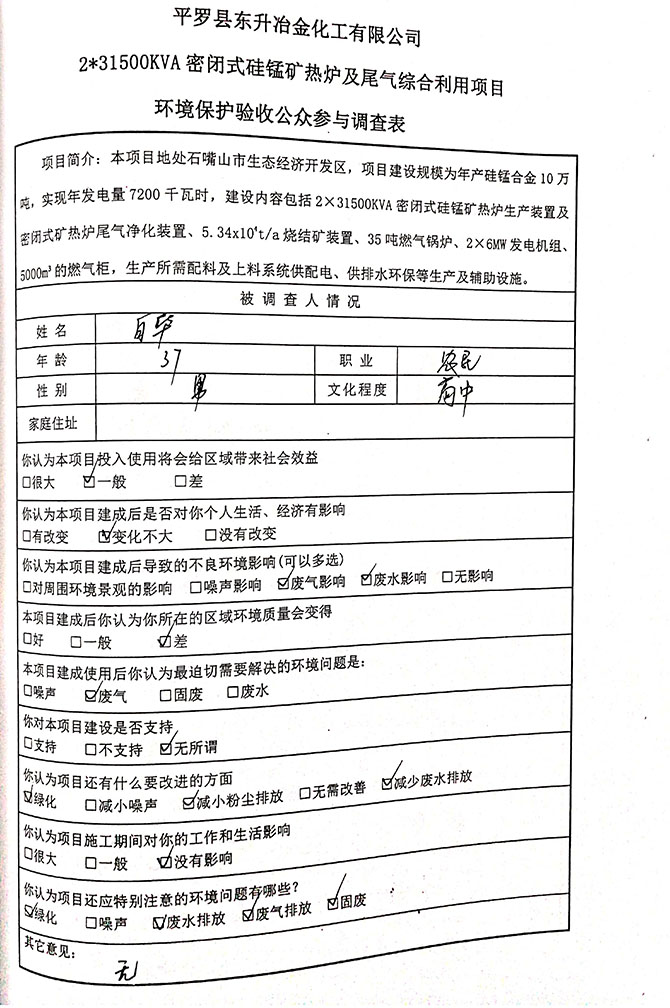 平罗县东升冶金化工有限公司
2*31500KVA 密闭式硅锰矿热炉及尾气综合利用项目
环境保护验收公众参与调查表
项目简介：本项目地处石嘴山市生态经济开发区，项目建设规模为年产硅锰合金10万
吨，实现年发电量7200千瓦时，建设内容包括2×31500KVA密闭式硅锰矿热炉生产装置及
密闭式矿热炉尾气净化装置、5.34x10⁴t/a烧结矿装置、35吨燃气锅炉、2×6MW发电机组、
5000m³的燃气柜，生产所需配料及上料系统供配电、供排水环保等生产及辅助设施。
被调查人情况
姓名 白华
年龄 37 职业 农民
性别 男 文化程度 高中
家庭住址
你认为本项目投入使用将会给区域带来社会效益
□很大 ☑一般 □差
你认为本项目建成后是否对你个人生活、经济有影响
□有改变 ☑变化不大 □没有改变
你认为本项目建成后导致的不良环境影响(可以多选)
□对周围环境景观的影响 □噪声影响 ☑废气影响 ☑废水影响 □无影响
本项目建成后你认为你所在的区域环境质量会变得
□好 □一般 ☑差
本项目建成使用后你认为最迫切需要解决的环境问题是:
□噪声 ☑废气 □固废 □废水
你对本项目建设是否支持
□支持 □不支持 ☑无所谓
你认为项目还有什么要改进的方面
☑绿化 □减小噪声 ☑减小粉尘排放 □无需改善 ☑减少废水排放
你认为项目施工期间对你的工作和生活影响
□很大 □一般 ☑没有影响
你认为项目还应特别注意的环境问题有哪些?
☑绿化 □噪声 ☑废水排放 ☑废气排放 ☑固废
其它意见:
无